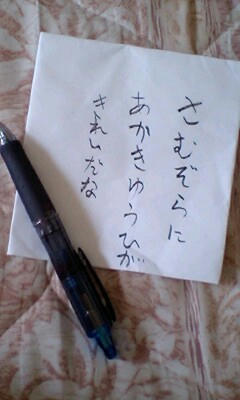 さむぞらに
あかきゆうひが
きれいだな